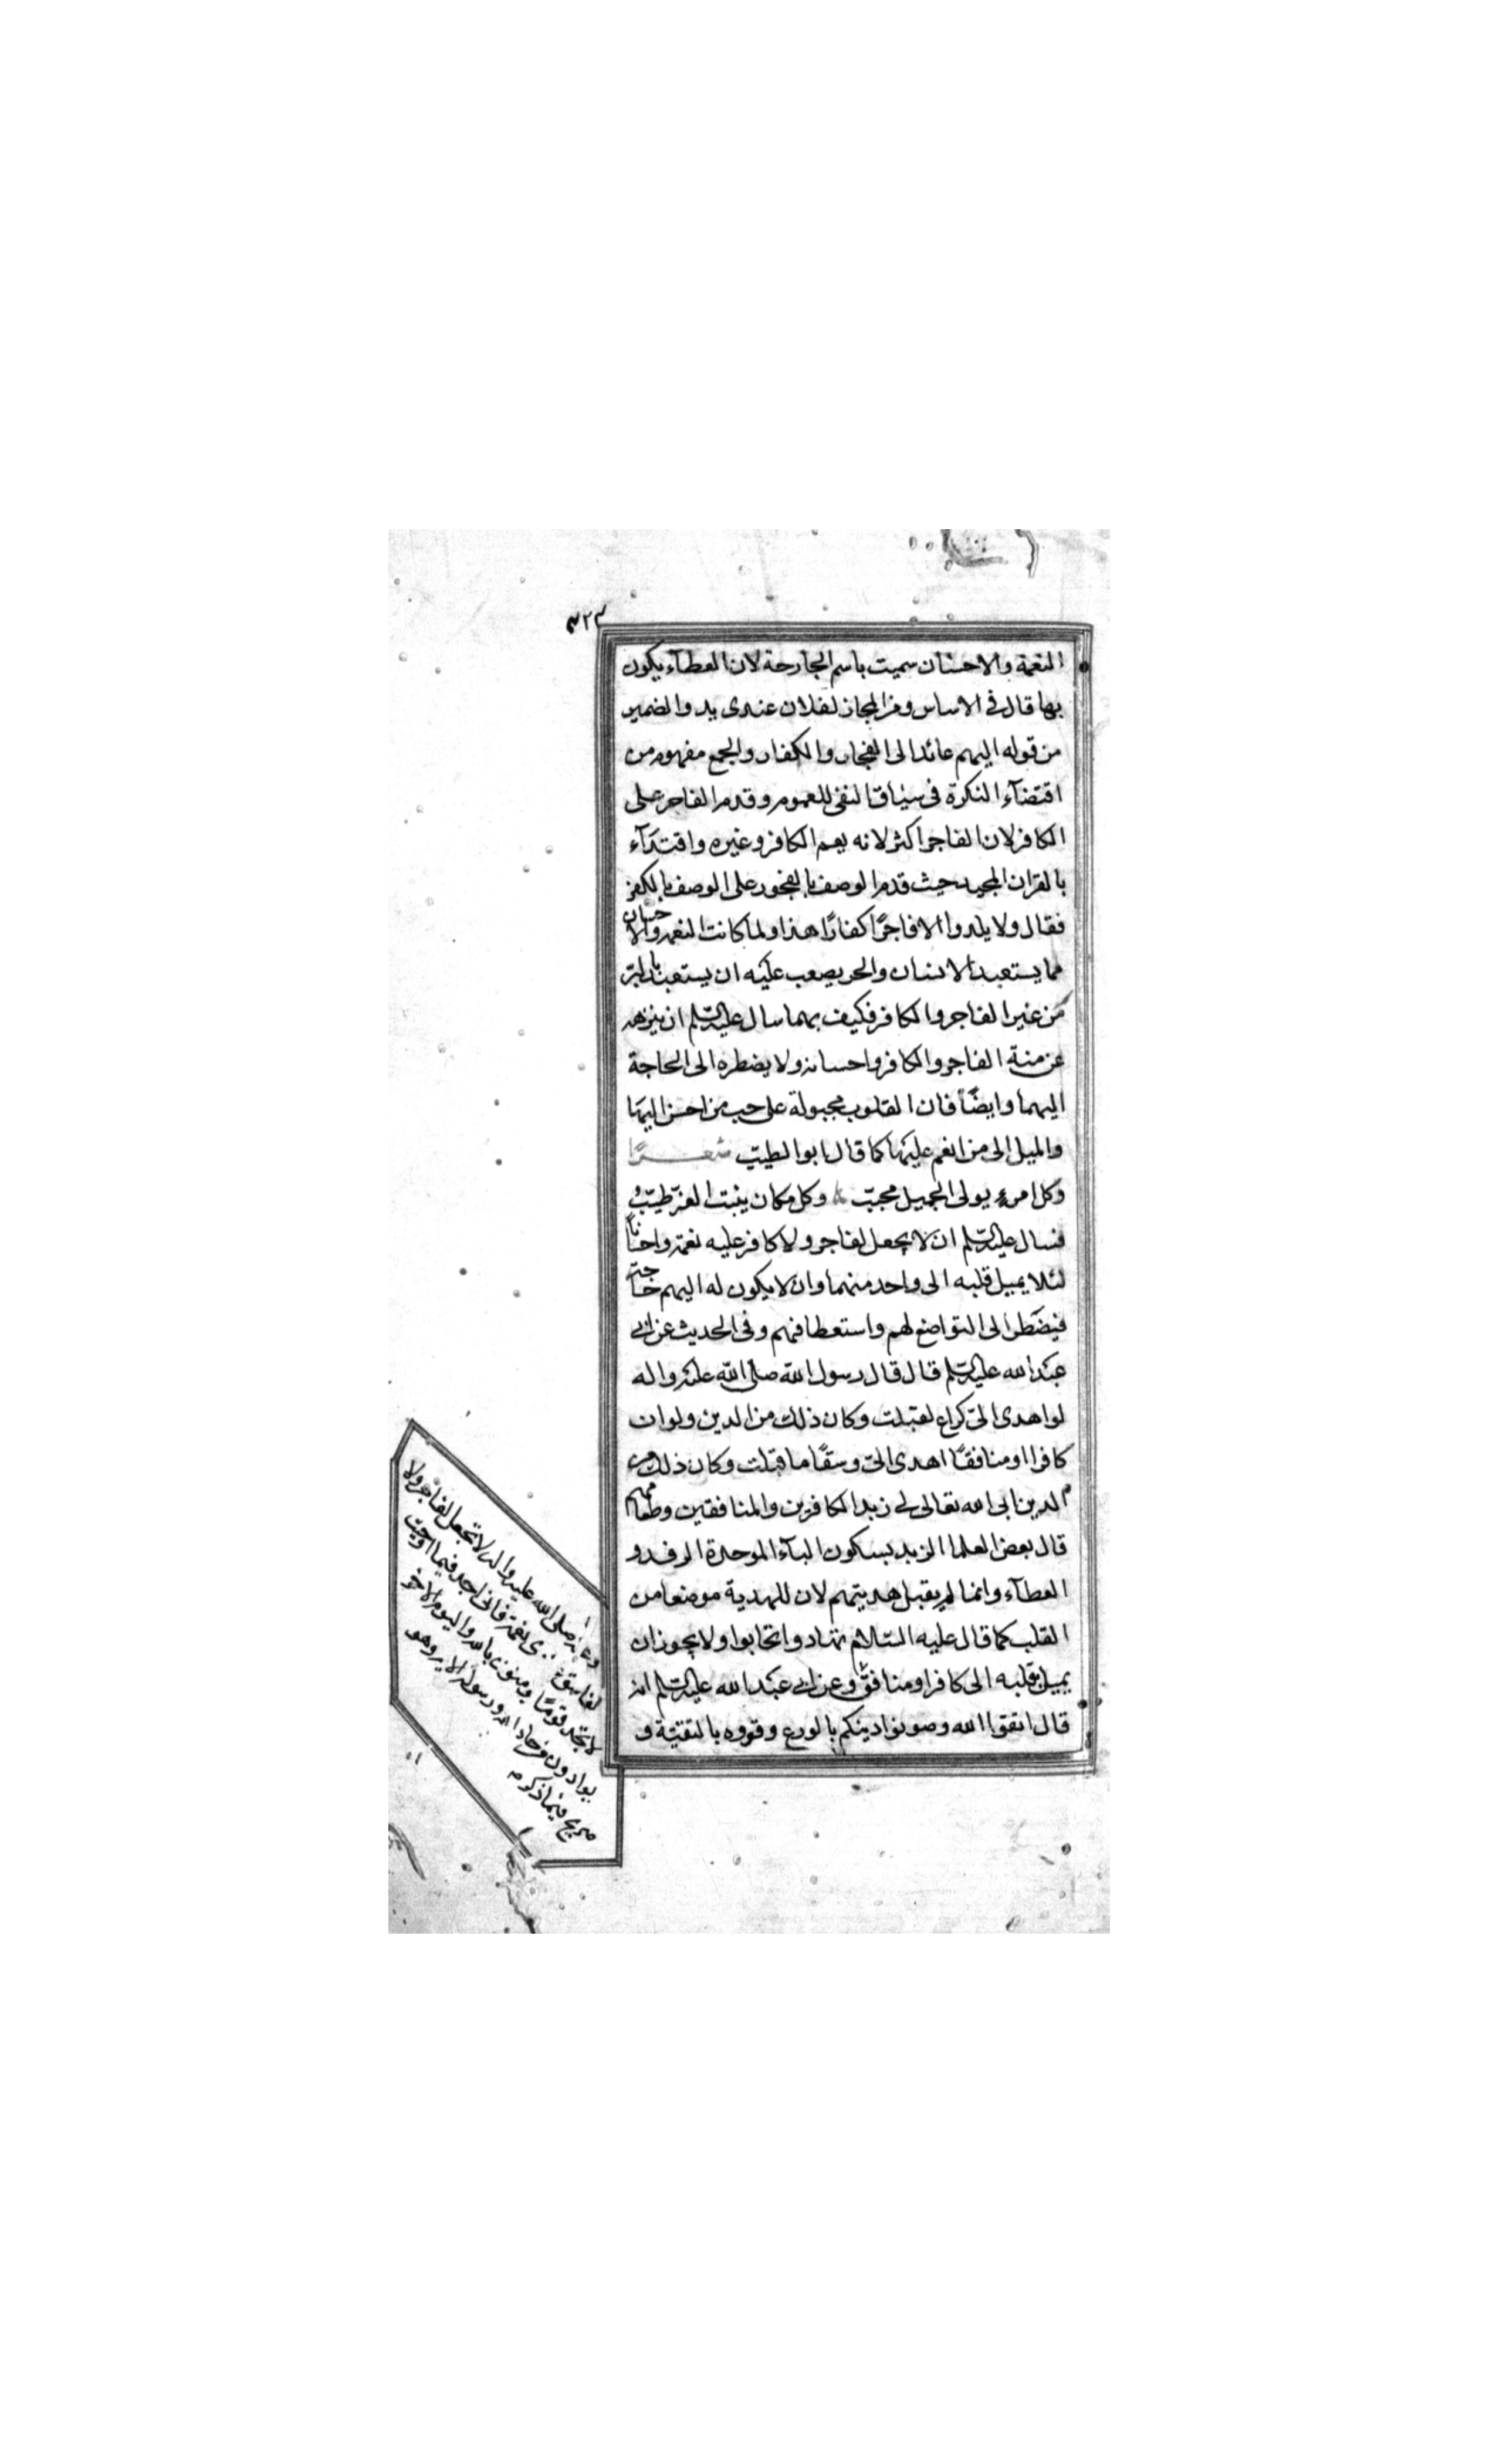 ٣٢٣
النعمة والاحسان سميت باسم الجارحة لان العطآء يكون
بها قال في الاساس ومن المجاز لفلان عندى يد والضمير
من قوله اليهم عائد الى الفجار والكفار والجمع مفهوم من
اقتضآء النكرة فى سياق النفى للعموم وقدم الفاجر على
الكافر لان الفاجر اكثر لانه يعم الكافر وغيره واقتدآء
بالقران المجيد حيث قدم الوصف بالفجور على الوصف بالكفر
فقال ولا يلدوا الا فاجرًا كفارًا هذا ولما كانت النعمة والاحسان
مما يستعبد الانسان والحر يصعب عليه ان يستعبد بالبرّ
من غير الفاجر والكافر فكيف بهما سال عليه السّلم ان ينزهه
عن منة الفاجر والكافر واحسانه ولا يضطره الى الحاجة
اليهما وايضًا فان القلوب مجبولة على حب من احسن اليها
والميل الى من انعم عليها كما قال ابو الطيب شعــرًا
وكل امرءٍ يولى الجميل محببّ وكل مكان ينبت العزّ طيّبُ
فسال عليه السّلم ان لا يجعل لفاجر ولا كافر عليه نعمة واحسانًا
لئلا يميل قلبه الى واحد منهما وان لا يكون له اليهم حاجة
فيضطر الى التواضع لهم واستعطافهم وفى الحديث عن ابى
عبد الله عليه السّلم قال قال رسول الله صلى الله عليه واله
لو اهدى الىّ كراع لقبلت وكان ذلك من الدين ولو ان
كافرا او منافقًا اهدى الىّ وسقًا ما قبلت وكان ذلك من
الدين ابى الله تعالى لى زبد الكافرين والمنافقين وطعامهم
قال بعض العلما الزبد بسكون البآء الموحدة الرفد و
العطآء وانما لم يقبل هديتهم لان للهدية موضعا من
القلب كما قال عليه السّلام تهادوا تحابوا ولا يجوز ان
يميل بقلبه الى كافر او منافق وعن ابى عبد الله عليه السّلم انه
قال اتقوا الله وصونوا دينكم بالورع وقووه بالتقيّة و
وعنه صلى الله عليه واله لا تجعل لفاجر ولا
لفاسق عندى نعمة فانى اجد فيما اوحيت
لا تجد قومًا يومنون بالله واليوم الاخر
يوادون من حاد الله ورسوله الاية وهو
صريح فيما ذكر م